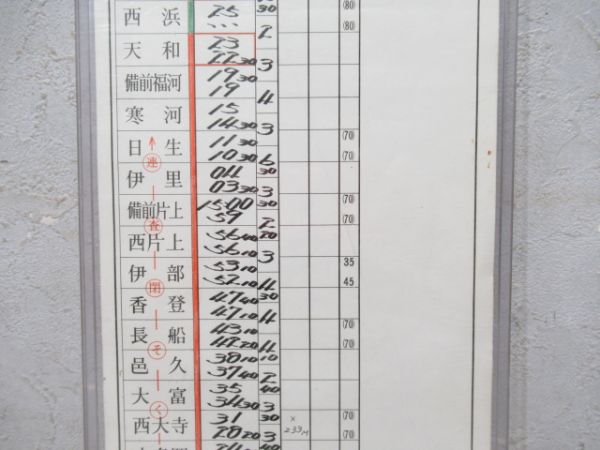 30 (80)
西浜 25 (80)
2
天和 23
22 30 3
備前福河 19 30
19 4
寒河 15
14 30 3
日生 11 30 (70)
10 30 6 (70)
連
伊里 04 30
03 30 3
備前片上 15:00 30 (70)
59 2 (70)
査
西片上 56 40 20
56 10 3
伊部 53 10 35
52 10 4 45
閉
香登 47 40 30
47 10 4
長船 43 10 (70)
42 20 4 (70)
そ
邑久 38 10 10
37 40 2
大富 35 40
34 30 3
く
西大寺 31 30 × (70)
28 20 3 233M (70)